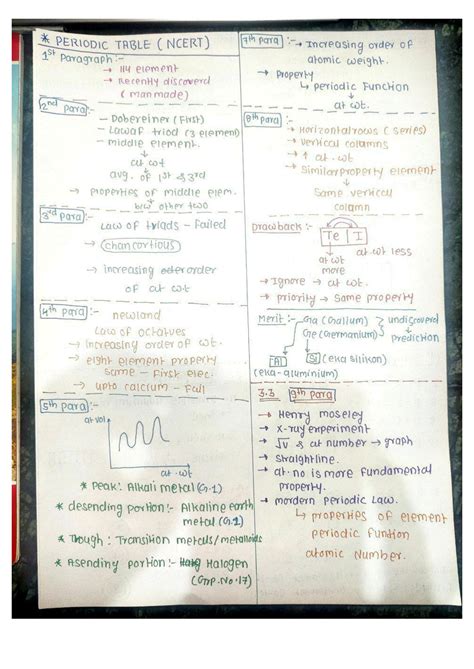 * PERIODIC TABLE (NCERT)
1st Paragraph:-
→ 114 element
→ Recently discoverd
(man made)
2nd para:-
- Dobereiner (First)
- Lawof triod (3 element)
- middle element.
at wt
avg. of 1st & 3rd
→ properties of middle elem.
b/w other two
3rd para:-
Law of triads - Failed
→ chancortious
→ increasing order
of at wt
4th para:- newland
Law of octatves
→ increasing order of wt.
→ eight element property
same - First elec.
→ upto calcium - Fail
5th para:-
at vol
at.wt
* Peak: Alkali metal (G.1)
* desending portion:- Alkaline earth
metal (G.1)
* Though: Transition metals/metalloids
* Asending portion:- Halogen
(Grp. No. 17)
7th para:- → Increasing order of
atomic weight.
→ Property
↳ periodic Function
at wt.
8th para:-
→ Horizontal rows (series)
→ vertical columns
→ ↑ at. wt
→ Similar property element
Same vertical
column
Drawback:-
Te I
at wt
more
at.wt less
→ Ignore → at wt.
→ priority → same property
Merit:- Ga (Gallium)
Ge (Germanium)
undiscoverd
prediction
Al Si (eka silikon)
(eka-aluminium)
3.3 9th para
→ Henry moseley
→ x-ray experiment
→ √v & at number → graph
→ straightline.
→ at.no is more fundamental
property.
→ mordern Periodic Law.
↳ properties of element
periodic funtion
atomic Number.